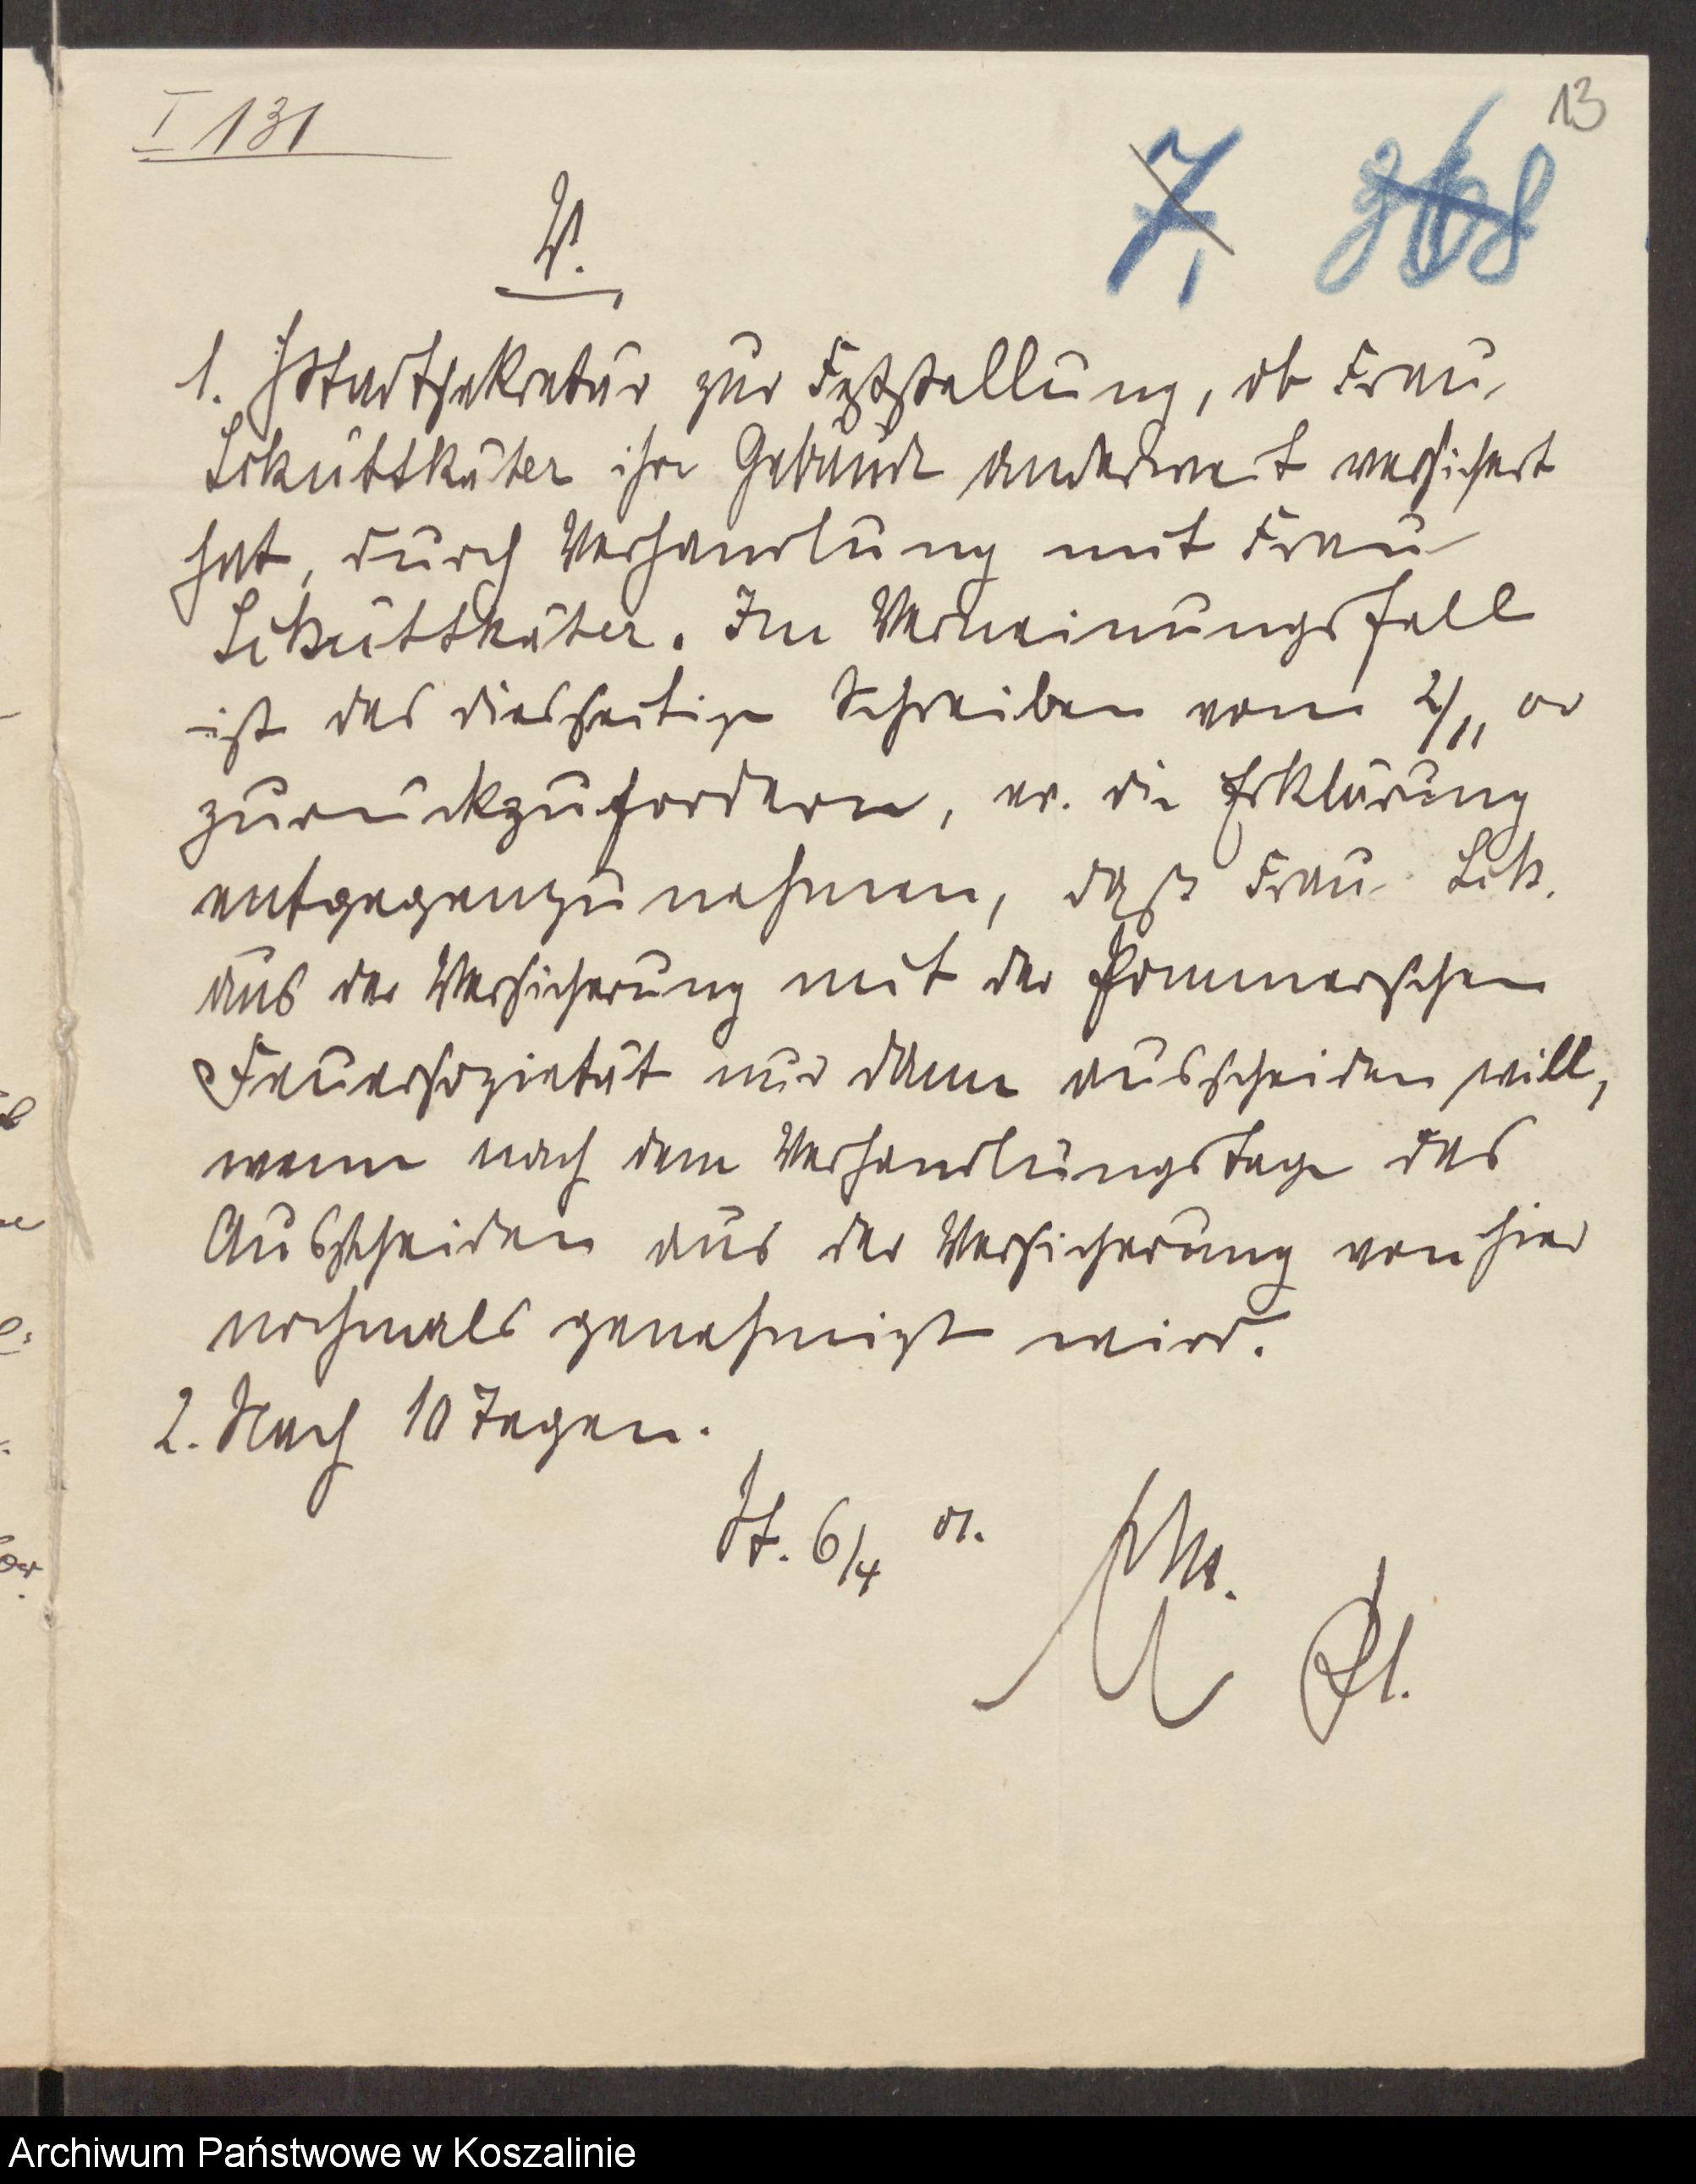 I 131
13
7,
V.
1. H Stadtsekretär zur Feststellung, ob Frau
ihre Gebäude anderweit versichert
hat, durch Verhandlung mit Frau
Im Verneinungsfall
ist das diesseitige Schreiben vom 2/11 or
zurückzufordern, er. die Erklärung
entgegenzunehmen, daß Frau
aus der Versicherung mit der Pommerschen
Feuersozietät nur dann ausscheiden will,
wenn nach dem Verhandlungstage das
Ausscheiden aus der Versicherung von hier
nochmals genehmigt wird.
2. Nach 10 Tagen.
St. 6/4 01.
Archiwum Państwowe w Koszalinie